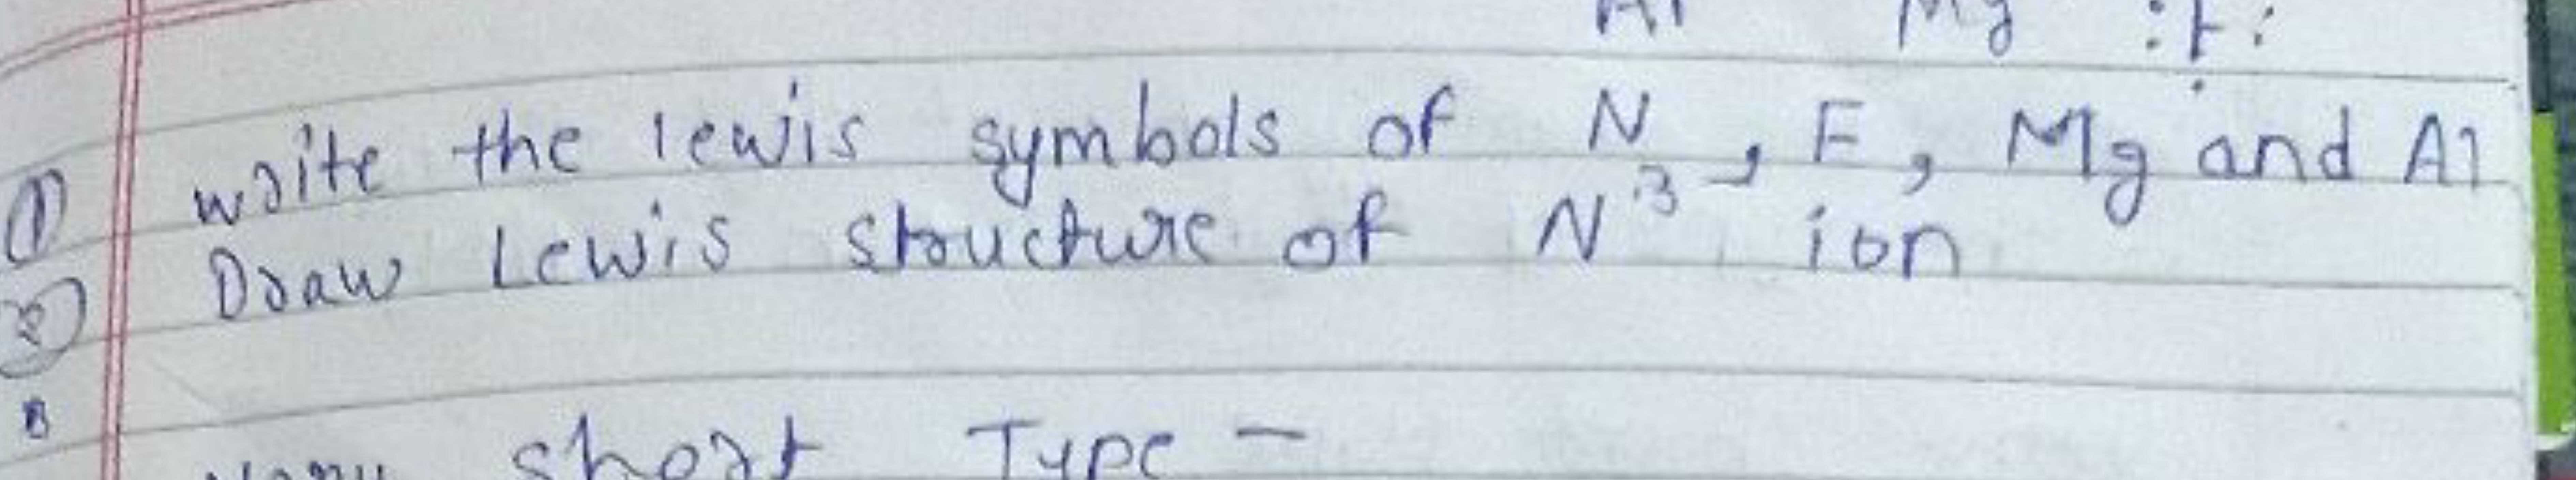 Al Mg :F:
① write the lewis symbols of N, F, Mg and Al
② Draw Lewis structure of N³ ion
B
very short Type -